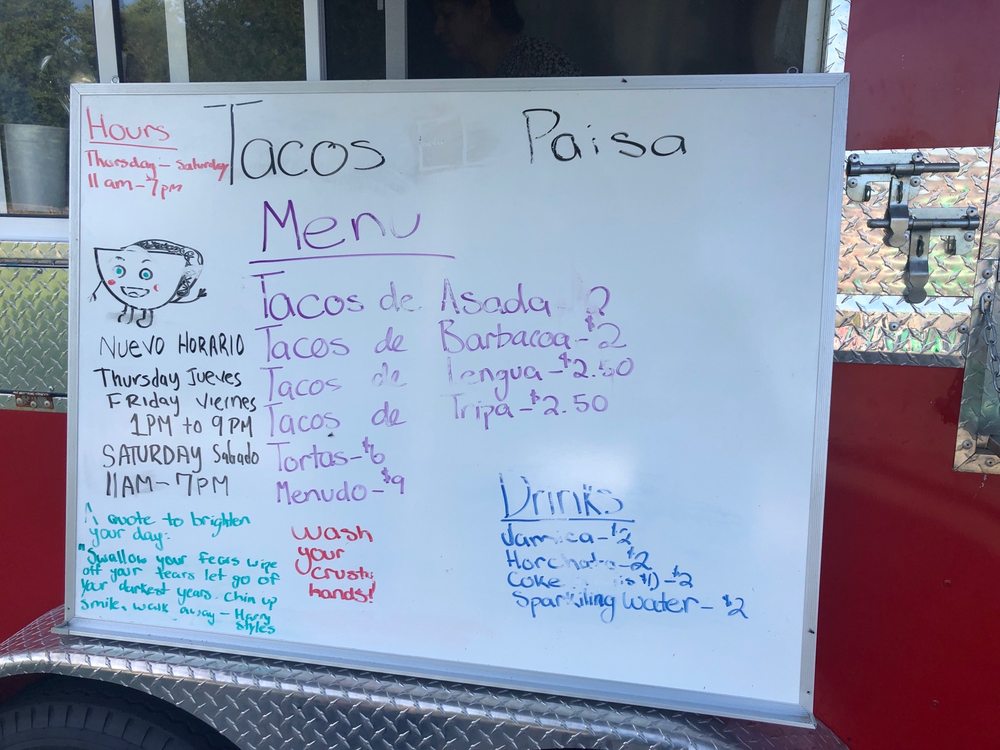 Tacos Paisa
Hours
Thursday - Saturday
11am - 7pm
Menu
Tacos de Asada - 2
Tacos de Barbacoa - $2
Tacos de Lengua - $2.50
Tacos de Tripa - $2.50
Tortas - $6
Menudo - $9
NUEVO HORARIO
Thursday Jueves
FRiday Viernes
1PM to 9PM
SATURDAY Sabado
11AM - 7PM
A quote to brighten
your day:
"Swallow your fears wipe
off your tears let go of
your darkest years. Chin up
smile, walk away - Harry
styles
wash
your
crusty
hands!
Drinks
Jamaica - $2
Horchata - $2
Coke - $2
Sparkiling Water - $2